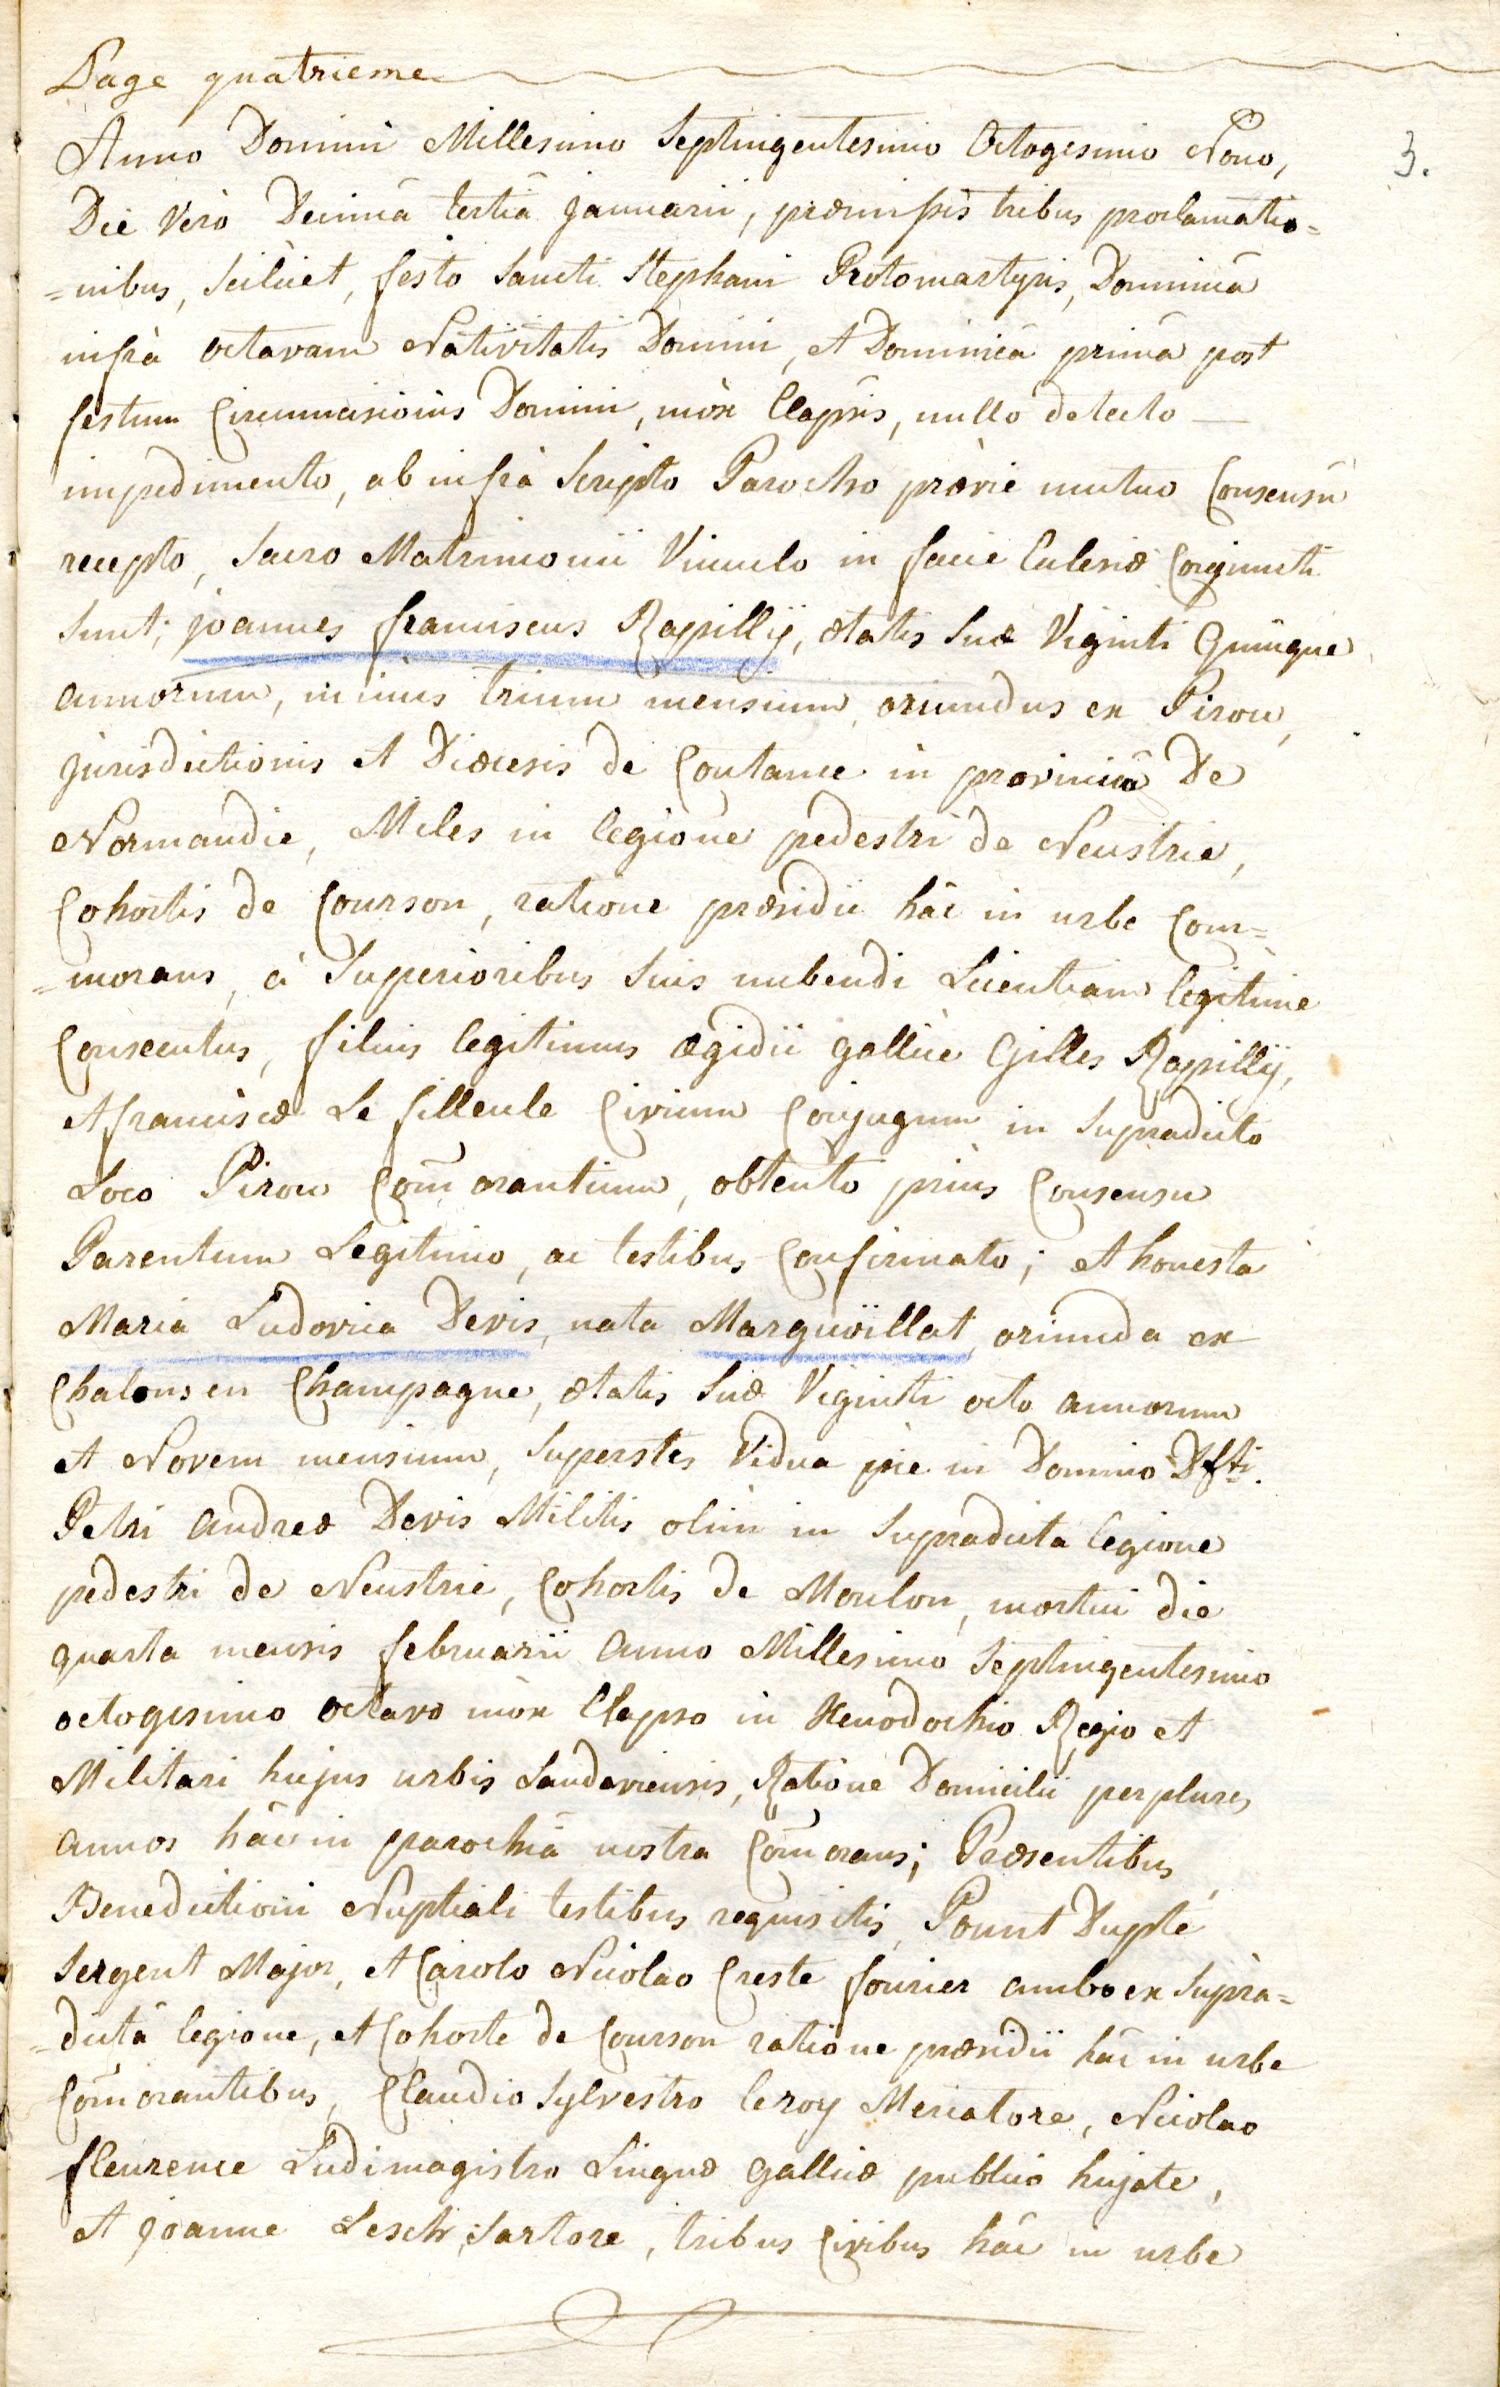 Page quatrieme
Anno Domini Millesimo Septingentesimo Octogesimo Nono,
3.
Die Verò Decimâ tertiâ januarii, præmissis tribus proclamatio=
=nibus, Scilicet, festo Sancti Stephani Protomartyris, Dominicâ
infrà octavam Nativitatis Domini, et Dominicâ primâ post
festum Circumcisionis Domini, mòx Elapsis, nullo detecto
impedimento, ab infrà Scripto Parocho prævie mutuo Consensu
recepto, Sacro Matrimonii Vinculo in facie Eclesiæ Conjuncti
Sunt; joannes franciscus Rapillÿ, ætatis suæ Viginti Quinque
annorum, minus trium mensium, oriundus ex Pirou,
jurisdictionis et Diœcesis de Coutance in provinciâ De
Normandie, Miles in legione pedestri de Neustrie,
Cohortis de Courson, ratione præsidii hâc in urbe Com=
=morans, à Superioribus Suis nubendi Licentiam legitime
Consecutus, filius legitimus ægidii gallicè Gilles Rapillÿ,
et franciscæ Le filleule Civium Conjugum in Supradicto
Loco Pirou Com̄orantium, obtento priùs Consensu
Parentum Legitimo, ac testibus Confirmato; et honesta
Maria Ludovica Devis, nata Marguöillat, oriunda ex
Chalons en Champagne, ætatis Suæ Viginti octo annorum
et Novem mensium, Superstes Vidua pie in Domino Dfti.
Petri andreæ Devis Militis olim in Supradicta legione
pedestri de Neustrie, Cohortis de Moulon, mortui die
quarta mensis februarii anno Millesimo Septingentesimo
octogesimo octavo mòx Elapso in Xenodochio Regio et
Militari hujus urbis Landaviensis, Ratione Domicilii per plures
annos hâc in parochiâ nostra Com̄orans; Præsentibus,
Benedictioni Nuptiali testibus requisitis, Pount Duplé
Sergent Major, et Carolo Nicolao Creste fourier ambo ex Suprà=
=dictâ legione, et Cohorte de Courson ratione præsidii hâc in urbe
Com̄orantibus, Claudio Sylvestro leroy Mercatore, Nicolao
fleurence Ludimagistro Linguæ gallicæ publico hujate,
et joanne Lesch, Sartore, tribus Civibus hâc in urbe